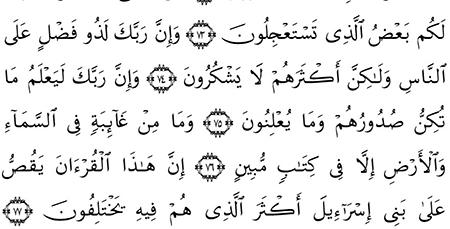 لَكُم بَعۡضُ ٱلَّذِى تَسۡتَعۡجِلُونَ ﴿٧٣﴾ وَإِنَّ رَبَّكَ لَذُو فَضۡلٍ عَلَى
ٱلنَّاسِ وَلَـٰكِنَّ أَكۡثَرَهُمۡ لَا يَشۡكُرُونَ ﴿٧٤﴾ وَإِنَّ رَبَّكَ لَيَعۡلَمُ مَا
تُكِنُّ صُدُورُهُمۡ وَمَا يُعۡلِنُونَ ﴿٧٥﴾ وَمَا مِنۡ غَآئِبَةٍ فِى ٱلسَّمَآءِ
وَٱلۡأَرۡضِ إِلَّا فِى كِتَـٰبٍ مُّبِينٍ ﴿٧٦﴾ إِنَّ هَـٰذَا ٱلۡقُرۡءَانَ يَقُصُّ
عَلَىٰ بَنِىٓ إِسۡرَٲٓءِيلَ أَكۡثَرَ ٱلَّذِى هُمۡ فِيهِ يَخۡتَلِفُونَ ﴿٧٧﴾